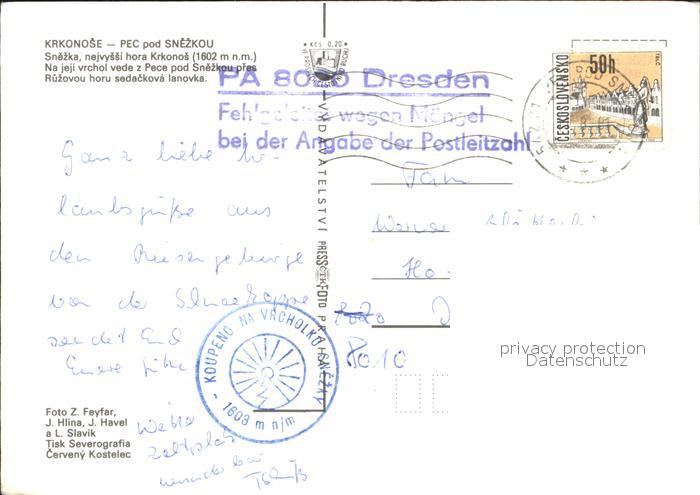 KRKONOŠE — PEC pod SNĚŽKOU
Sněžka, nejvyšší hora Krkonoš (1602 m n.m.)
Na její vrchol vede z Pece pod Sněžkou přes
Růžovou horu sedačková lanovka.
Kčs 0,20
PA 8010 Dresden
Fehlgeleitet wegen Mängel
bei der Angabe der Postleitzahl
ČESKOSLOVENSKO
50h
TELČ
VYDAVATELSTVÍ PRESSFOTO PRAHA
Ganz liebe Ur-
laubsgrüße aus
dem Riesengebirge
von der Schneekoppe
sendet Euch
Eure
Fam.
Werner
8020 D
8010
KOUPENO NA VRCHOLKU SNĚŽKY
1603 m n/m
privacy protection
Datenschutz
Foto Z. Feyfar,
J. Hlína, J. Havel
a L. Slavík
Tisk Severografia
Červený Kostelec
wunderbar